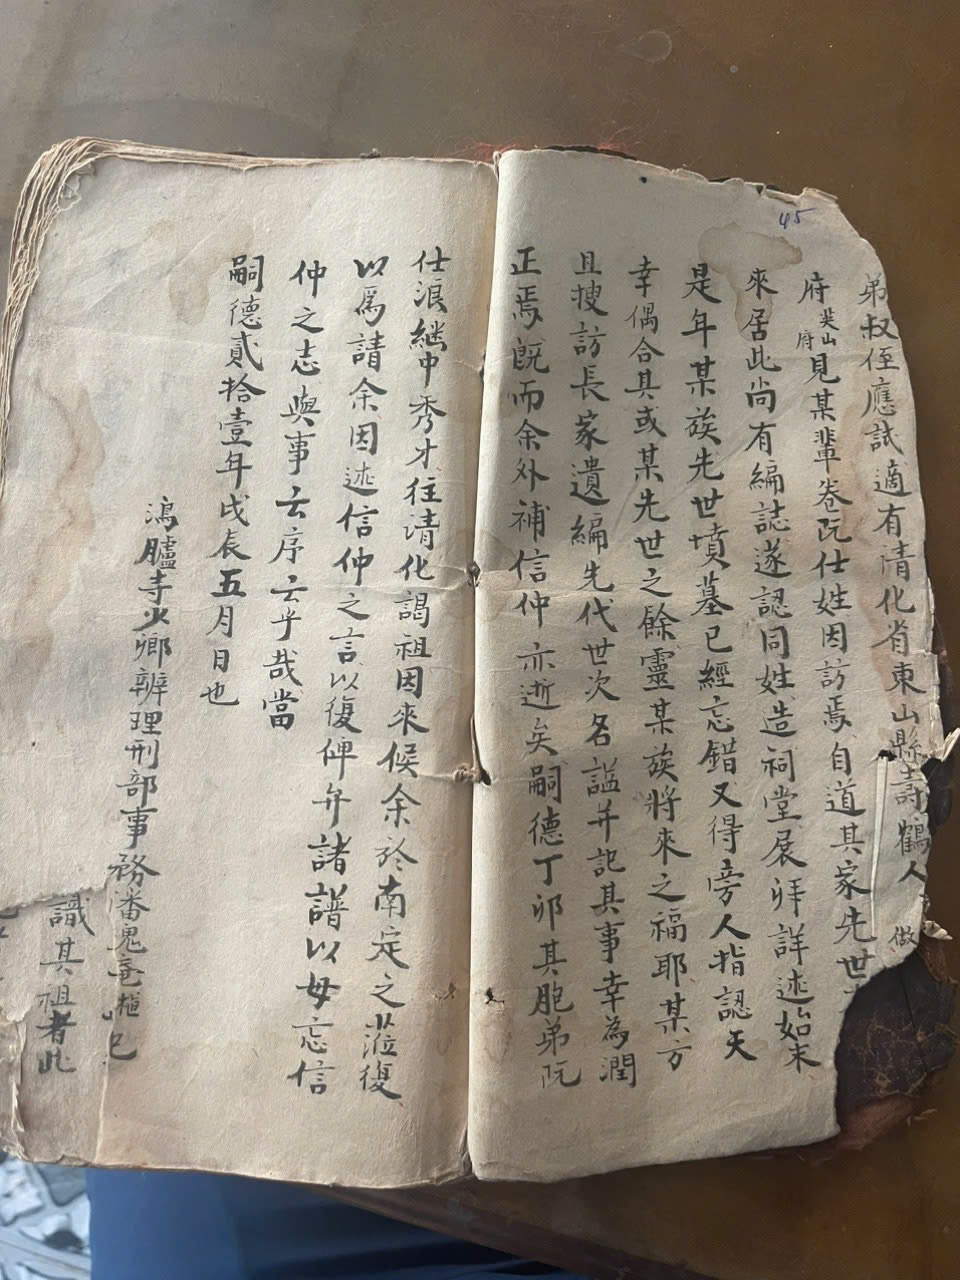 45
弟叔侄應試適有清化省東山縣壽鶴人
做
府关山府見某輩卷阮仕姓因訪焉自道其家先世
來居此尚有編誌遂認同姓造祠堂展拜詳述始末
是年某族先世墳墓已經忘錯又得旁人指認天
幸偶合其或某先世之餘靈某族將來之福耶某方
且搜訪長家遺編先代世次名諡并記其事幸為潤
正焉既而余外補信仲亦逝矣嗣德丁卯其胞弟阮
仕浪継中秀才往清化謁祖因來候余於南定之涖復
以爲請余因述信仲之言以復俾弁諸譜以毋忘信
仲之志與事云序云乎哉當
嗣德貳拾壹年戊辰五月日也
鴻臚寺少卿辨理刑部事務潘
識其祖者此